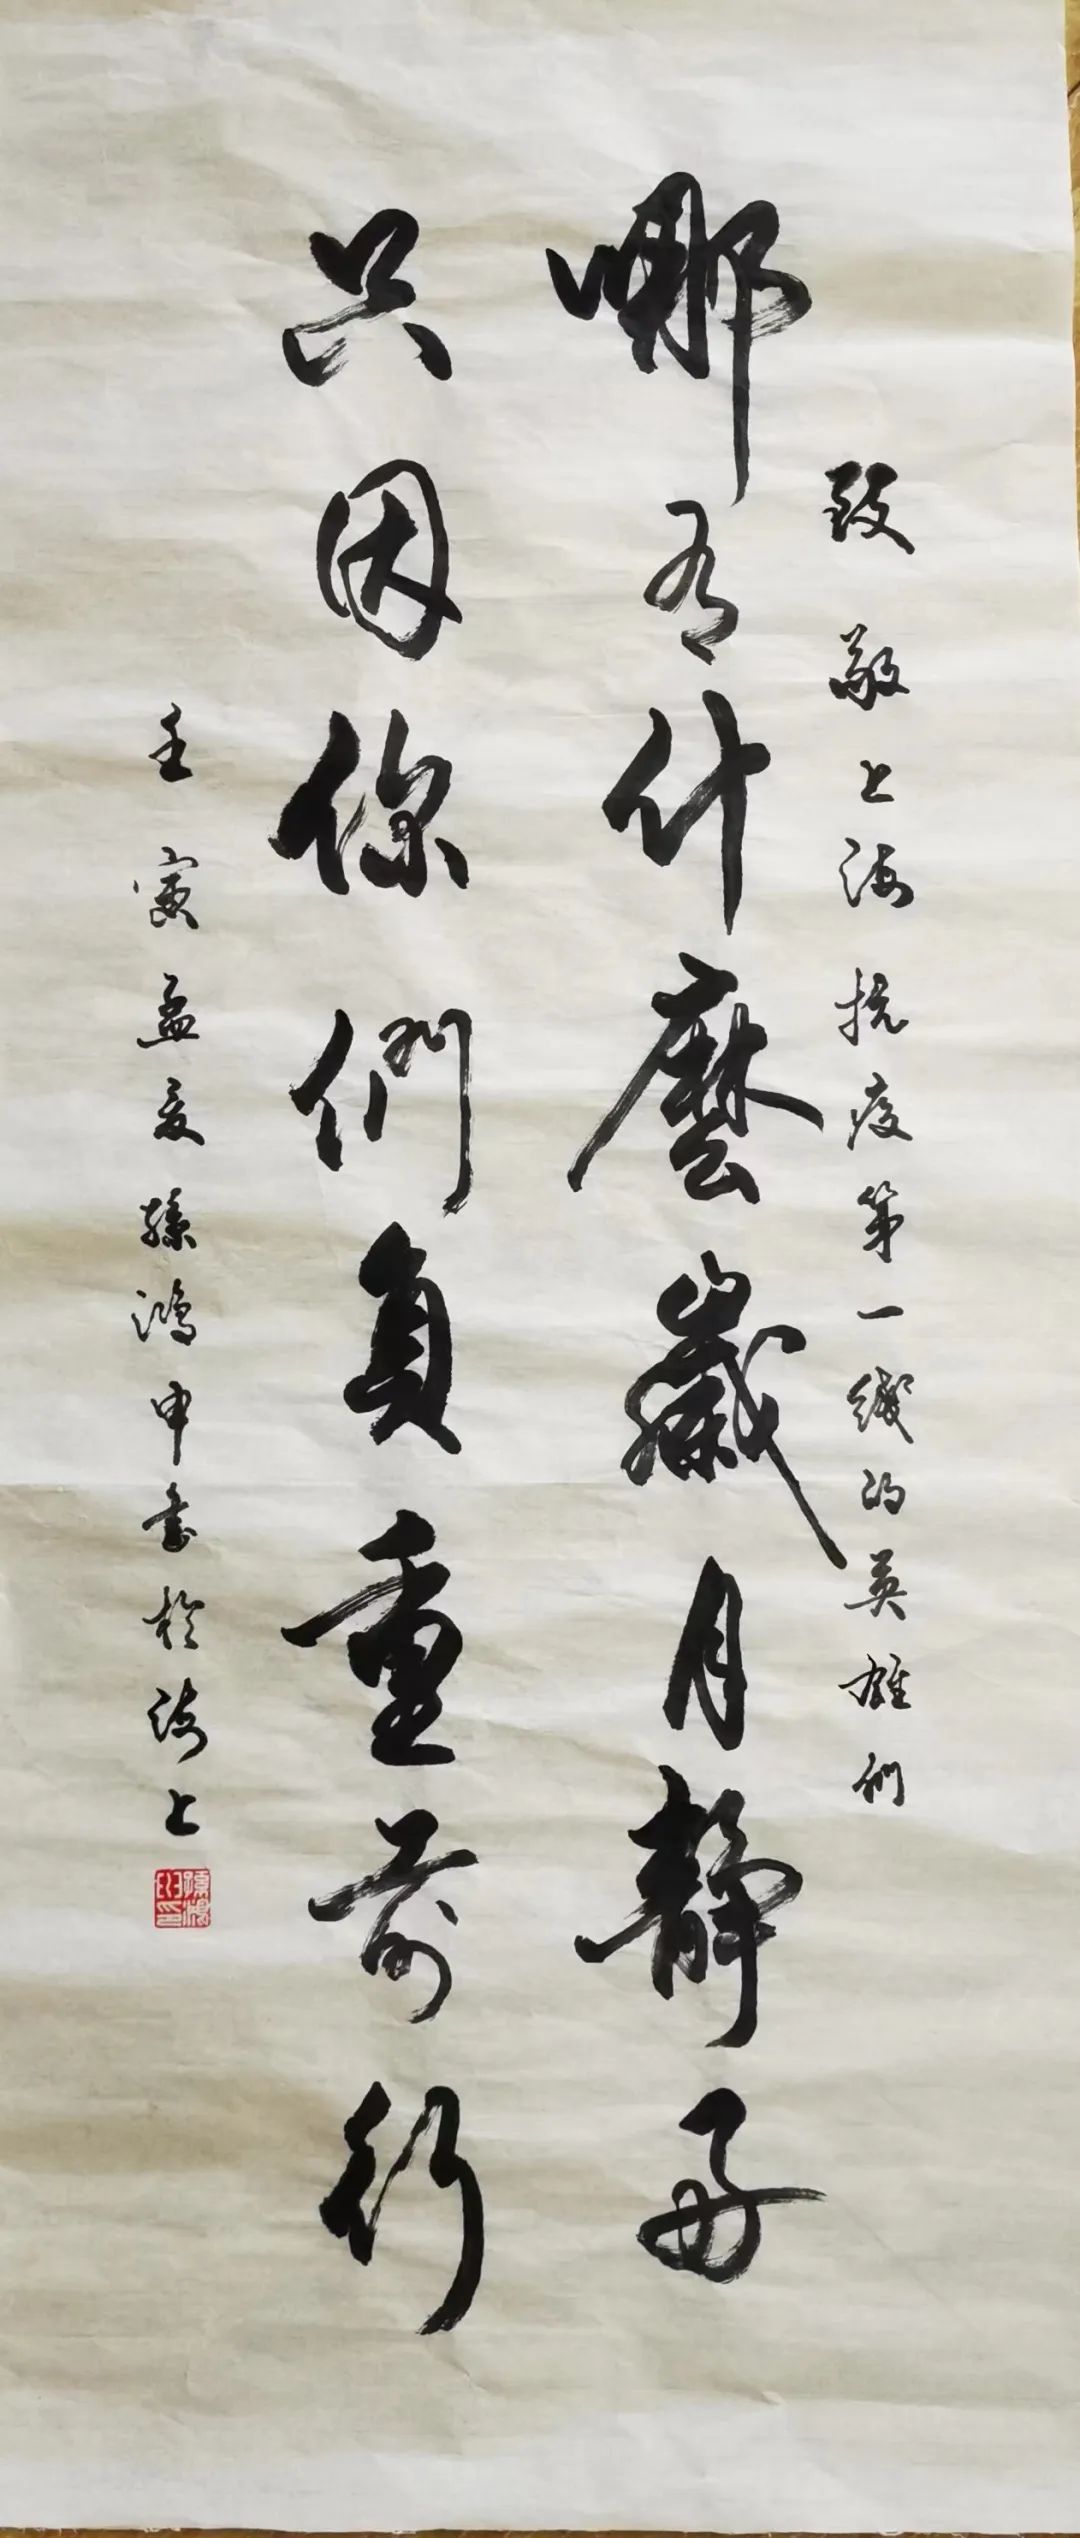 致敬上海抗疫第一綫的英雄們
哪有什麼歲月靜好
只因你們負重前行
壬寅孟夏孫鴻申書於海上